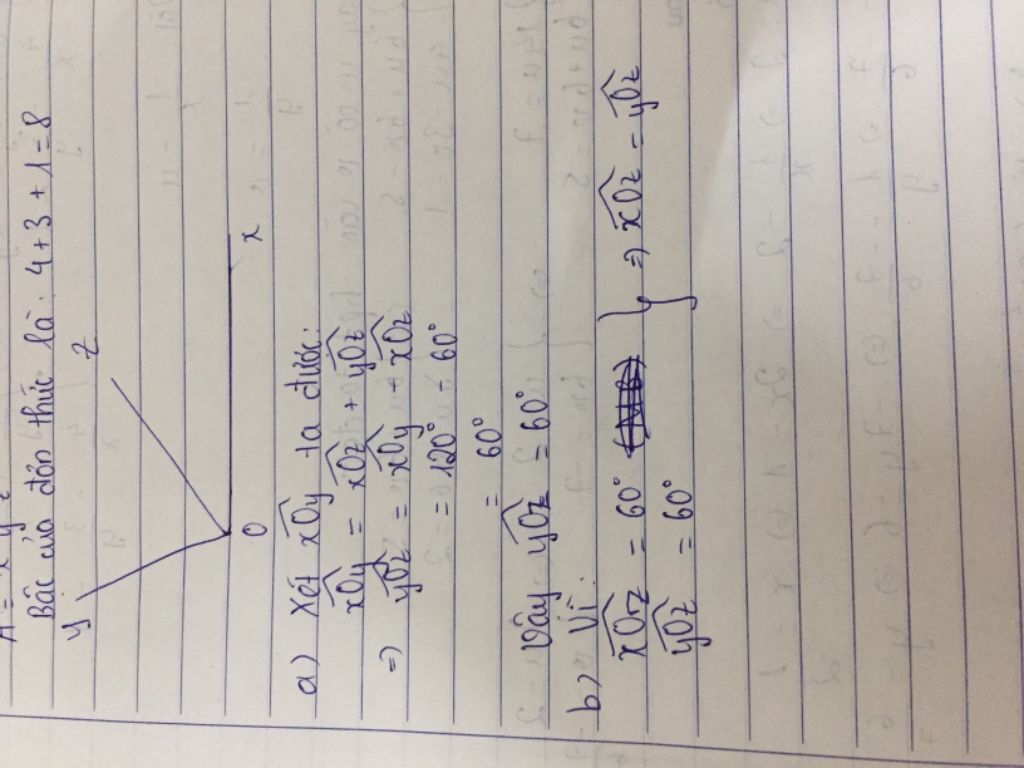 Bậc của đơn thức là: 4 + 3 + 1 = 8
y
z
O
x
a) Xét xOy ta được:
xOy = xOz + yOz
=> yOz = xOy - xOz
= 120° - 60°
= 60°
Vậy yOz = 60°
b) Vì:
xOz = 60°
yOz = 60°
} => xOz = yOz